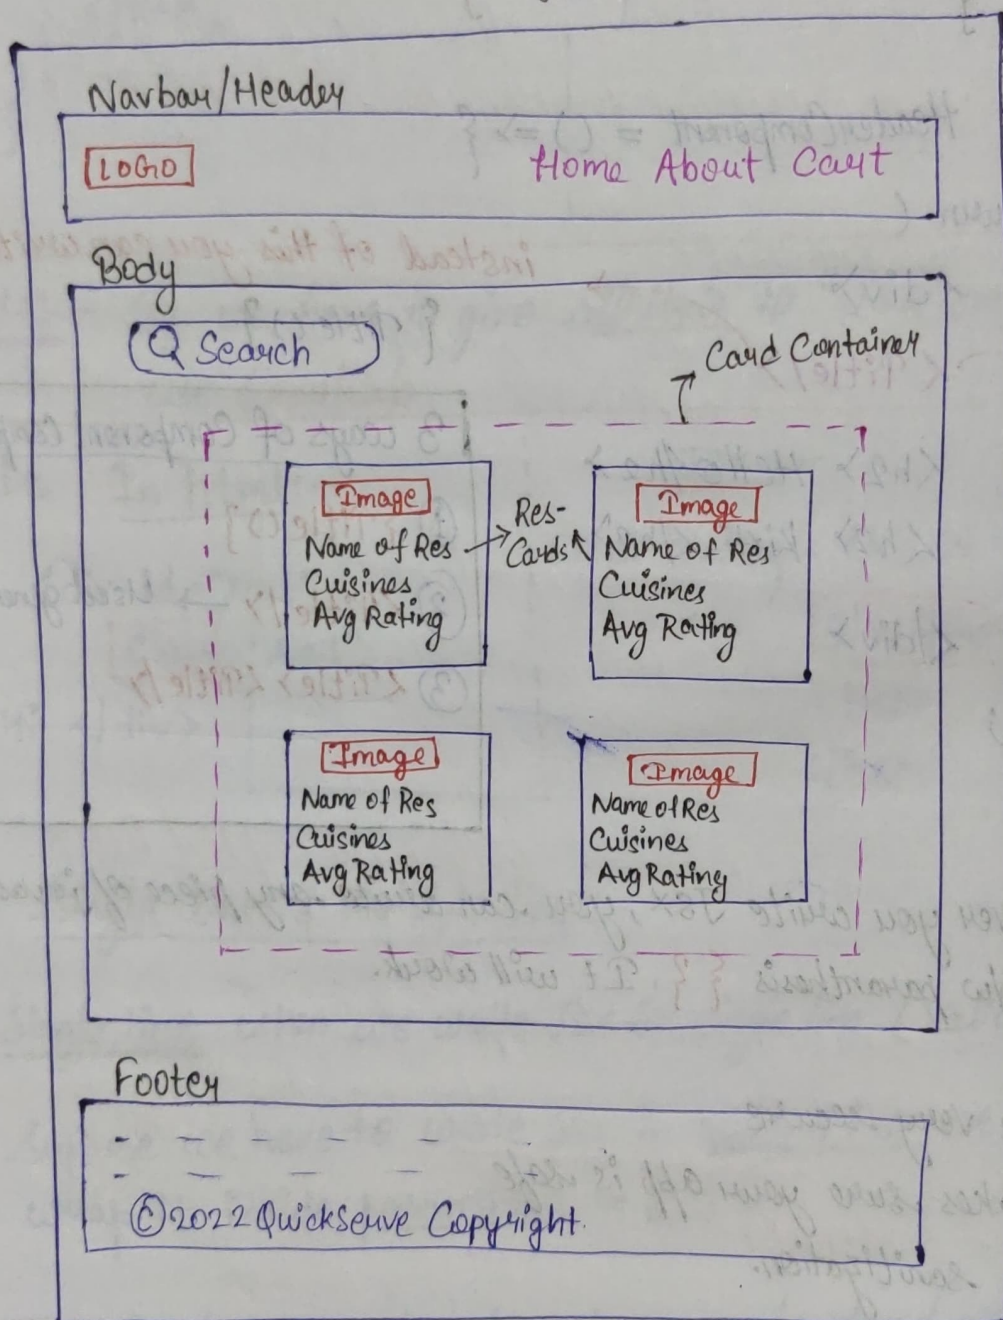 Navbar/Header
LOGO
Home About Cart
Body
Search
Card Container
Image
Name of Res
Cuisines
Avg Rating
Res-
Cards
Image
Name of Res
Cuisines
Avg Rating
Image
Name of Res
Cuisines
Avg Rating
Image
Name of Res
Cuisines
Avg Rating
Footer
©2022 QuickServe Copyright.